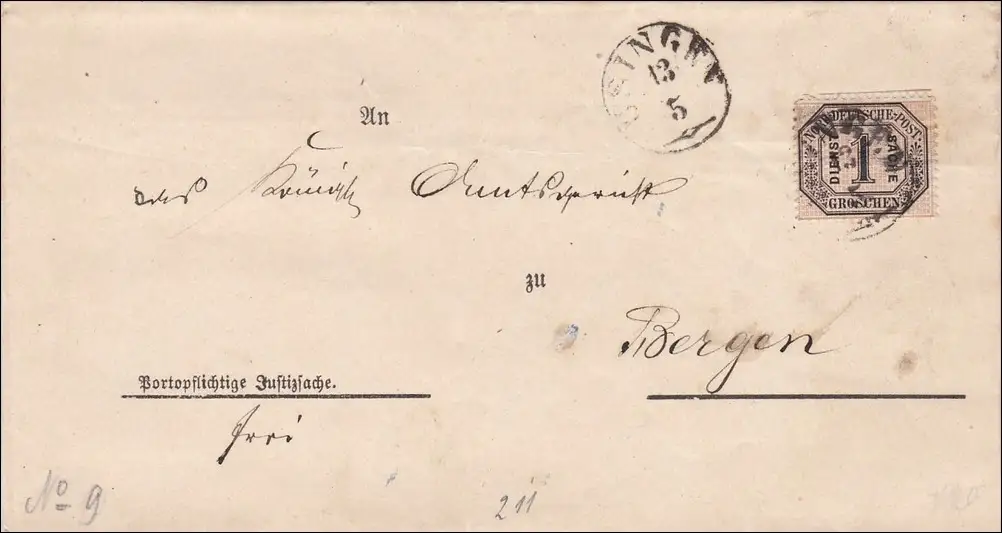 USINGEN
13
5
NORDDEUTSCHE-POST
DIENST SACHE
1
GROSCHEN
An
das Königl Amtsgericht
zu
Bergen
Portopflichtige Justizsache.
frei
No 9
211